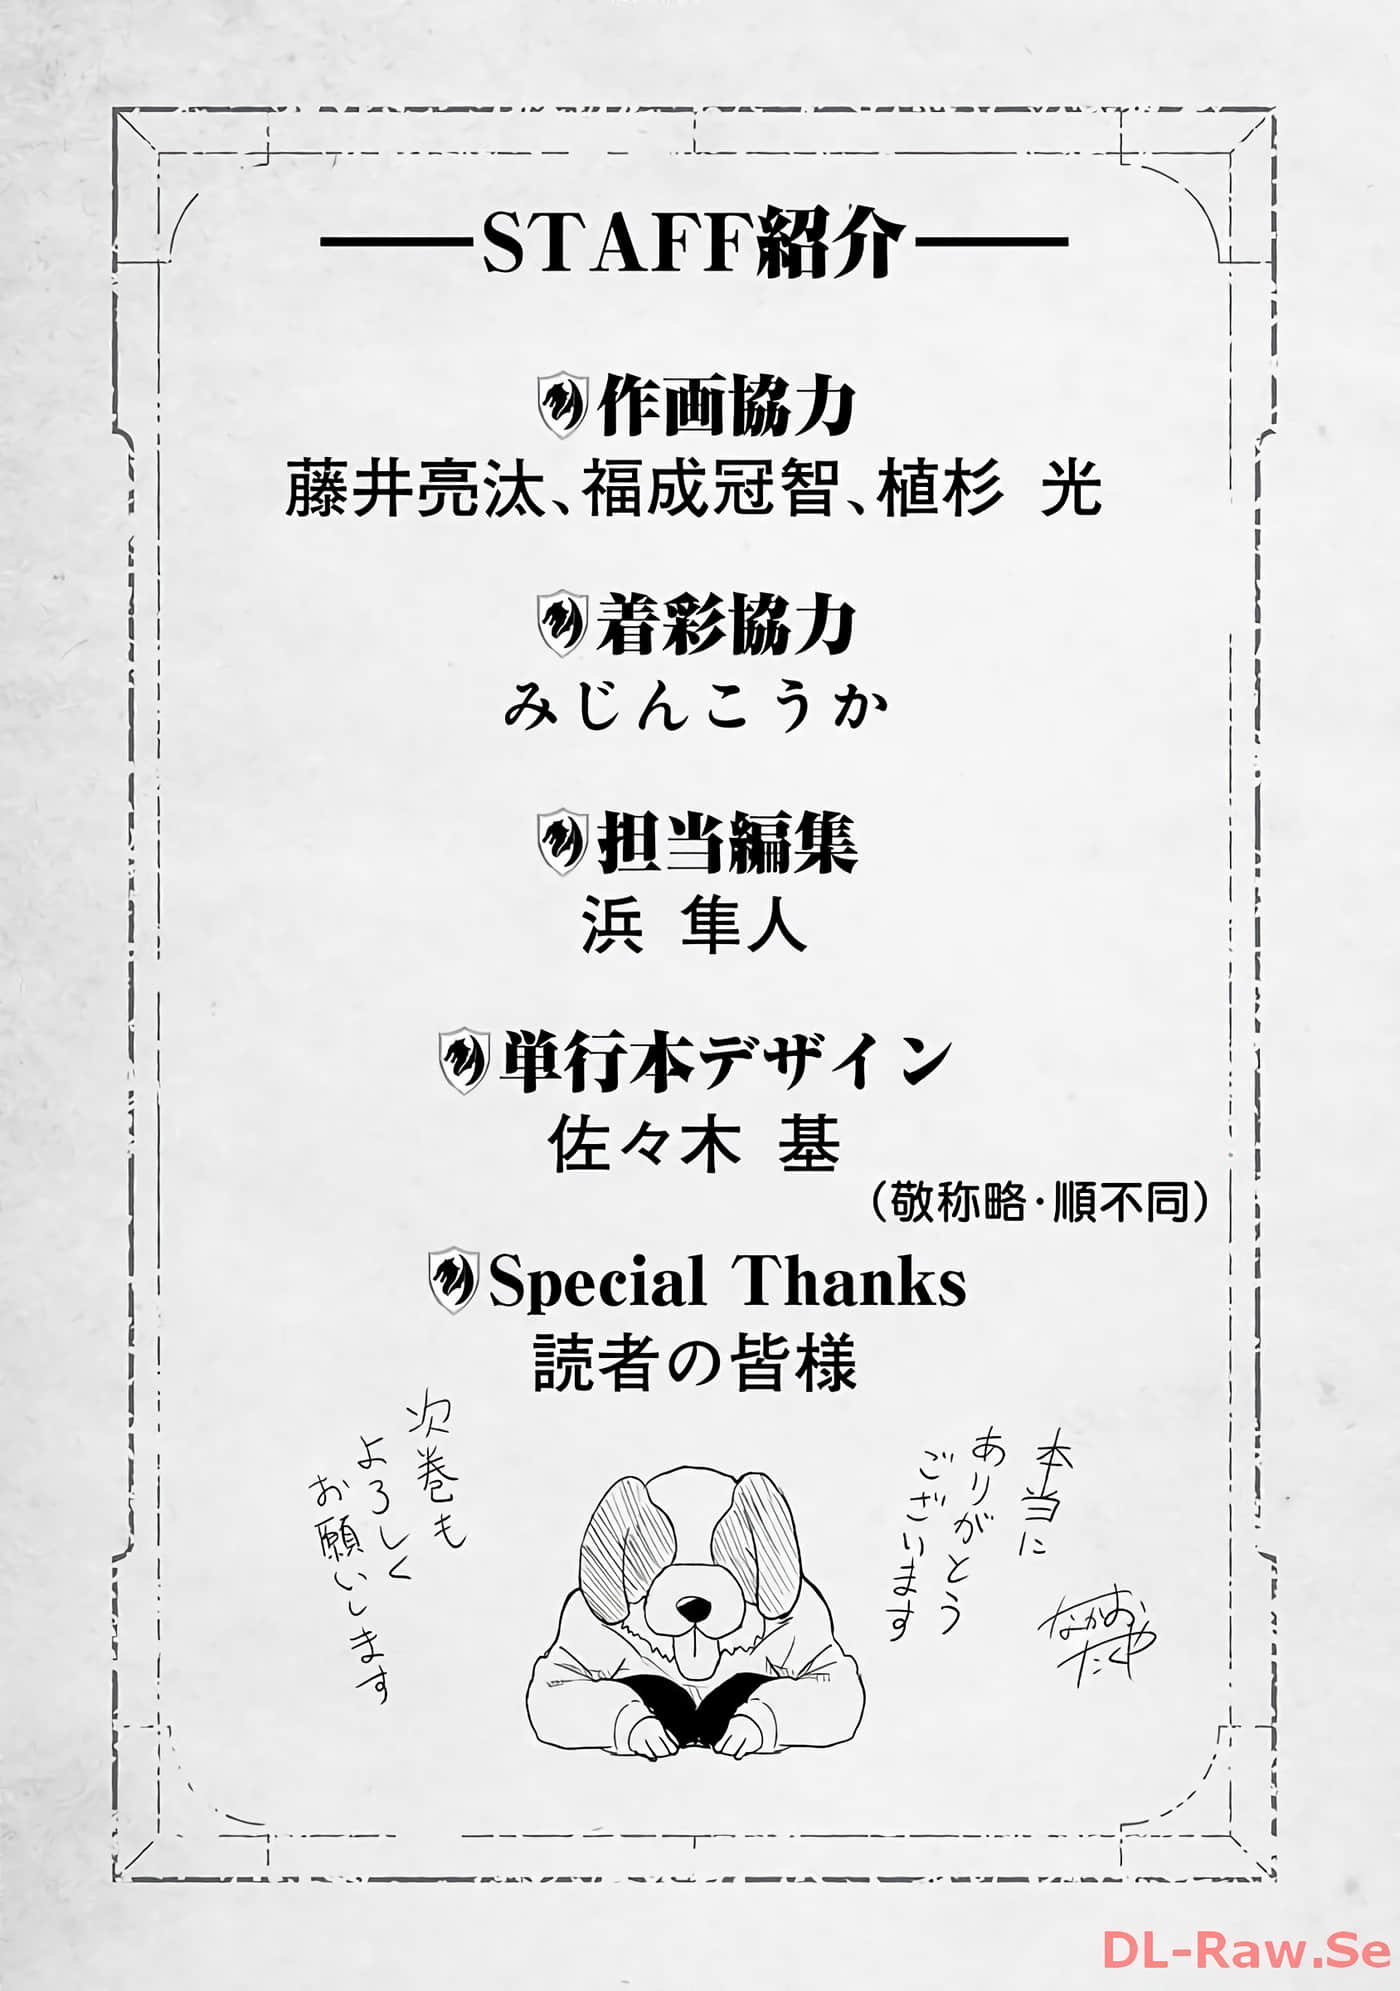 STAFF紹介
作画協力
藤井亮汰、福成冠智、植杉 光
着彩協力
みじんこうか
担当編集
浜 隼人
単行本デザイン
佐々木 基
(敬称略・順不同)
Special Thanks
読者の皆様
本当に
ありがとう
ございます
なかお
たくや
次巻も
よろしく
お願いします
DL-Raw.Se